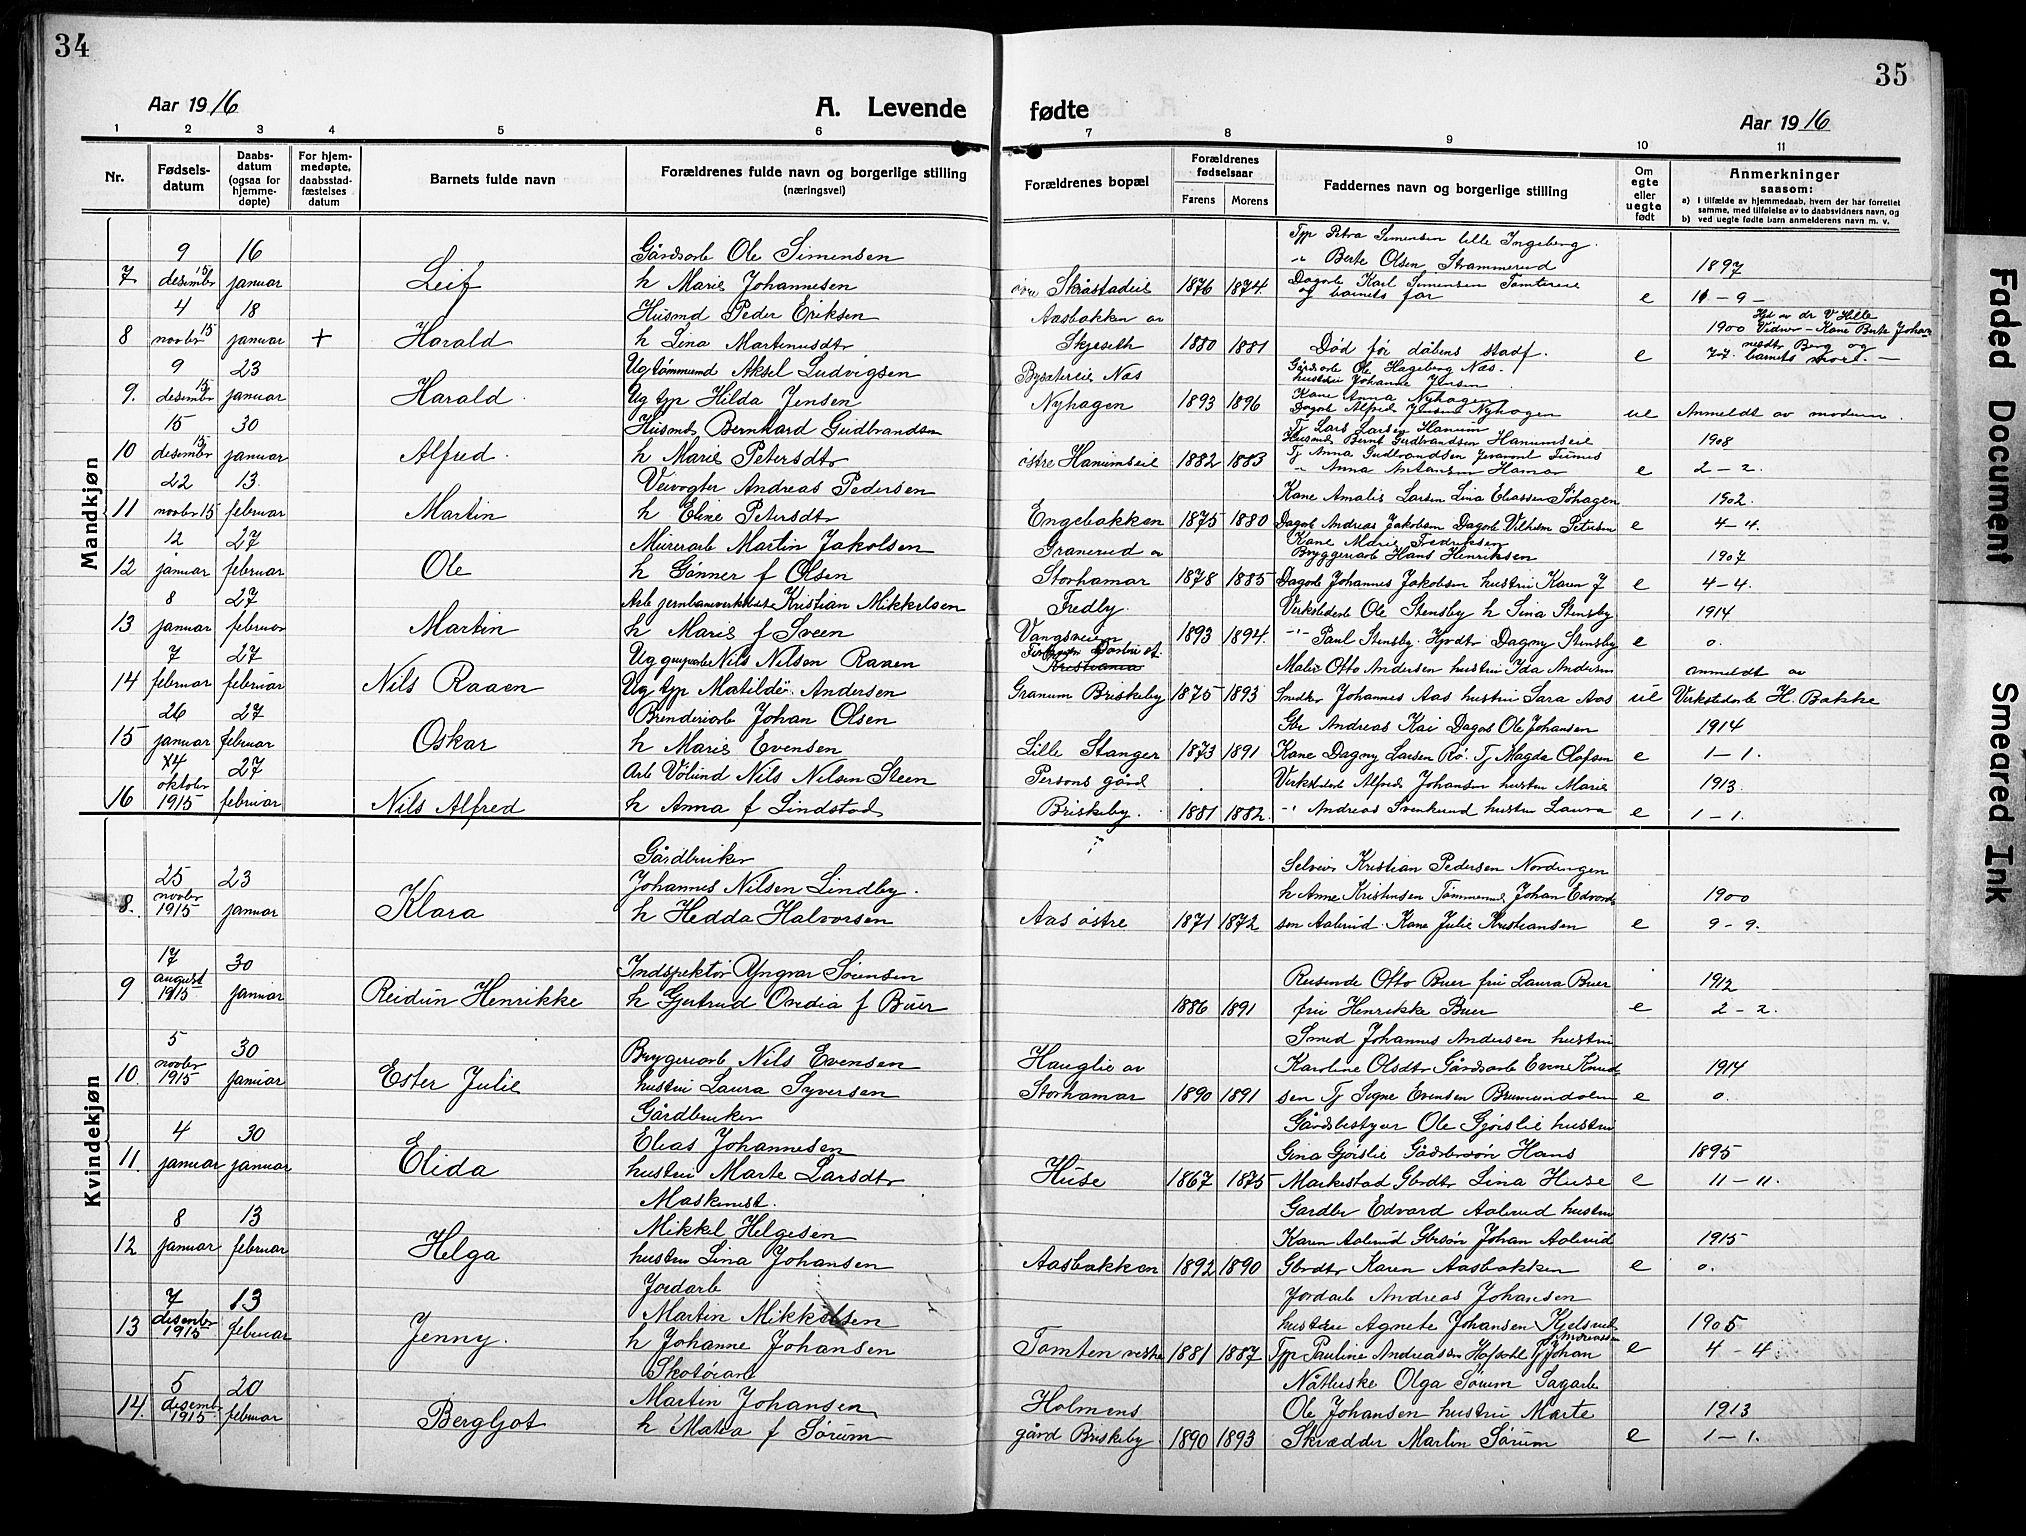 34
Aar 1916
A. Levende
1 2 3 4 5 6
Nr.
Fødsels-
datum
Daabs-
datum
(ogsaa for
hjemme-
døpte)
For hjem-
medøpte,
daabsstad-
fæstelses
datum
Barnets fulde navn
Forældrenes fulde navn og borgerlige stilling
(næringsvei)
Mandkjøn
9 16 Gårdsarb Ole Simensen
7 desembr 15 januar Leif h Marie Johannesen
4 18 Husmd Peder Eriksen
8 novbr 15 januar + Harald h Lina Martinusdtr
9 23 Ug tømmermd Aksel Ludvigsen
9. desembr 15 januar Harald. Ug typ Hilda Jensen
15 30 Husmd Bernhard Gudbrandsen
10 desembr 15 januar Alfred. h Marie Petersdtr
22 13 Veivogter Andreas Pedersen
11 novbr 15 februar Martin h Eline Petersdtr
12 27 Murerarb Martin Jakobsen
12 januar februar Ole h Gunner f Olsen
8 27 Arb jernbaneverkstedet Kristian Mikkelsen
13 januar februar Martin h Marie f Sveen
7 27 Ug Nils Nilsen Raaen
14 februar februar Nils Raaen Ug typ Matilde Andersen
26 27 Brenderiarb Johan Olsen
15 januar februar Oskar h Marie Evensen
14 27 Arb Vølund Nils Nilsen Steen
16 oktobr 1915 februar Nils Alfred h Anna f Lindstad
Kvindekjøn
Gårdbruker
25 23 Johannes Nilsen Lindby.
8. novbr 1915 januar Klara h Hedda Halvorsen
17 30 Indspektør Yngvar Sørensen
9 august 1915 januar Reidun Henrikke h Gjertrud Ovidia f Buer
5 30 Bryggeriarb Nils Evensen
10. novbr 1915 januar Ester Julie hustru Laura Syversen
Gårdbruker
4 30 Elias Johannesen
11. januar januar Elida hustru Marte Larsdtr
Maskinist.
8 13 Mikkel Helgesen
12 januar februar Helga hustru Lina Johansen
Jordarb
7 13 Martin Mikkelsen
13 desembr 1915 februar Jenny. h Johanne Johansen
Skotøiarb
5 20 Martin Johansen
14. desembr 1915 februar Bergljot h Matea f Sørum
35
fødte
Aar 1916
7 8 9 10 11
Forældrenes bopæl
Forældrenes
fødselsaar
Farens Morens
Faddernes navn og borgerlige stilling
Om
egte
eller
uegte
født
Anmerkninger
saasom:
a) I tilfælde av hjemmedaab, hvem der har forrettet
samme, med tilføielse av to daabsvidners navn, og
b) ved uegte fødte barn anmelderens navn m. v.
Typ Petra Simensen lille Ingeberg.
" Berte Olsen Strammerud 1897
øvre Skråstadeie 1876 1874. Dagarb Karl Simensen Tomtereie
og barnets far e 11 – 9 –
Aasbakken av Hjd av dr V Hille
1900 Vidner – Kane Berte Johan
Skjeseth 1880 1881 Død før dåbens stadf. e 7-7. nesdtr Berg og
barnets mort. –
Bysætereie Næs Gårdsarb Ole Hageberg Næs.
hustru Johanne Jensen
Nyhagen 1893 1896 Kane Anna Nyhagen
Dagarb Alfred Jensen Nyhagen ue Anmeldt av moderen.
Tj Lars Larsen Hanum
Husmd Bernt Gudbrandsen Hanumseie 1908
østre Hanumseie 1882 1883 Tj Anna Gudbrandsen
" Anna Antonsen Hamar e 2 – 2.
Kane Amalie Larsen Lina Eliassen Søhagen 1902.
Engebakken 1875 1880 Dagarb Andreas Jakobsen Dagarb Vilhelm Petersen e 4 – 4.
Granerud av Kane Marie Fredriksen
Bryggeriarb Hans Henriksen 1907
Storhamar 1878 1885 Dagarb Johannes Jakobsen hustru Karen J e 4 – 4.
Fredly. Verkstedarb Ole Stensby h Lina Stensby 1914
Vangsveien 1893 1894. -"- Paul Stensby. Hjvdtr Dagny Stensby e o.
Kristiania Maler Otto Andersen hustru Ida Andersen anmeldt av
Granum Briskeby 1875 1893 Snedker Johannes Aas hustru Sara Aas ue Verkstedarb H. Bakke
Gbr Andreas Kai Dagarb Ole Johansen 1914
Lille Stanger 1873 1891 Kane Dagny Larsen Rø. Tj Magda Olafsen e 1 – 1.
Persons gård Verkstedarb Alfred Johansen hustru Marie 1913.
Briskeby. 1881 1882. -" Andreas Svenkerud hustru Laura e 1 – 1.
Selveier Kristian Pedersen Nordingen
h Anne Kristinsen Tømmermd Johan Edvard 1900
Aas østre 1871 1872 sen Aalerud. Kane Julie Kristiansen e 9 – 9.
Reisende Otto Buer fru Laura Buer 1912
1886 1891 fru Henrikke Buer e 2 – 2.
Smed Johannes Andersen hustru
Hauglie av Karoline Olsdtr Gårdsarb Even Knud 1914
Storhamar 1890 1891 sen Tj Signe Evensen Brumunddalen e o.
Gårdsbestyrer Ole Gjørslie hustru
Gina Gjørslie Gårdbrsøn Hans 1895
Huse 1867 1875 Markestad Gbrdtr Lina Huse e 11 – 11.
Gårdbr Edvard Aalerud hustru
Karen Aalerud Gbrsøn Johan Aalerud 1915
Aasbakken 1892 1890 Gbrdtr Karen Aasbakken e o.
Jordarb Andreas Johansen
hustru Agnete Johansen Kjelsrud 1905
Andreassen
Tomten vestre 1881 1887 Typ Pauline Andreassen Hafsahl Tj Johan e 4 – 4.
Nåtlerske Olga Sørum Sagarb
Holmens Ole Johansen hustru Marte 1913
gård Briskeby 1890 1893 Skrædder Martin Sørum e 1 – 1.
Faded Document
Smeared Ink